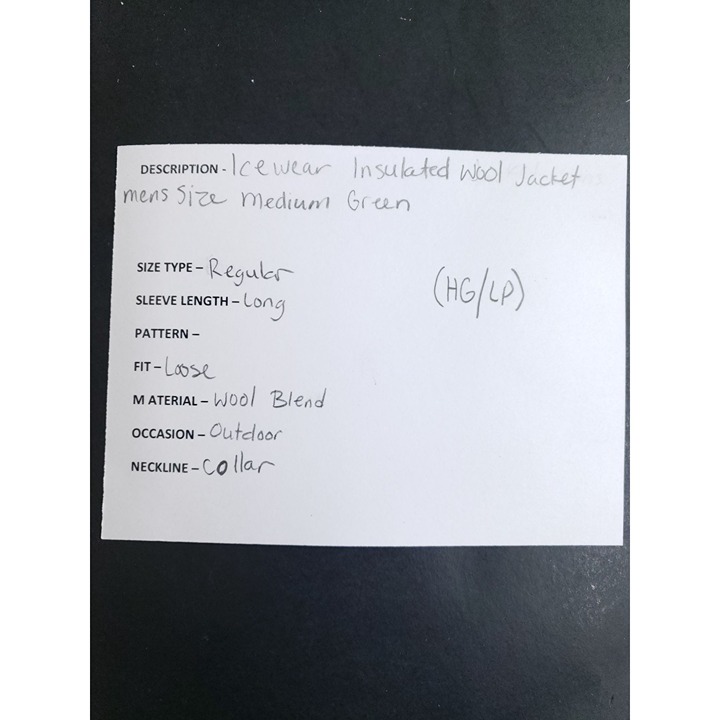 DESCRIPTION - Icewear Insulated Wool Jacket
mens Size Medium Green
SIZE TYPE – Regular
(HG/LP)
SLEEVE LENGTH – Long
PATTERN –
FIT – Loose
M ATERIAL – Wool Blend
OCCASION – Outdoor
NECKLINE – Collar